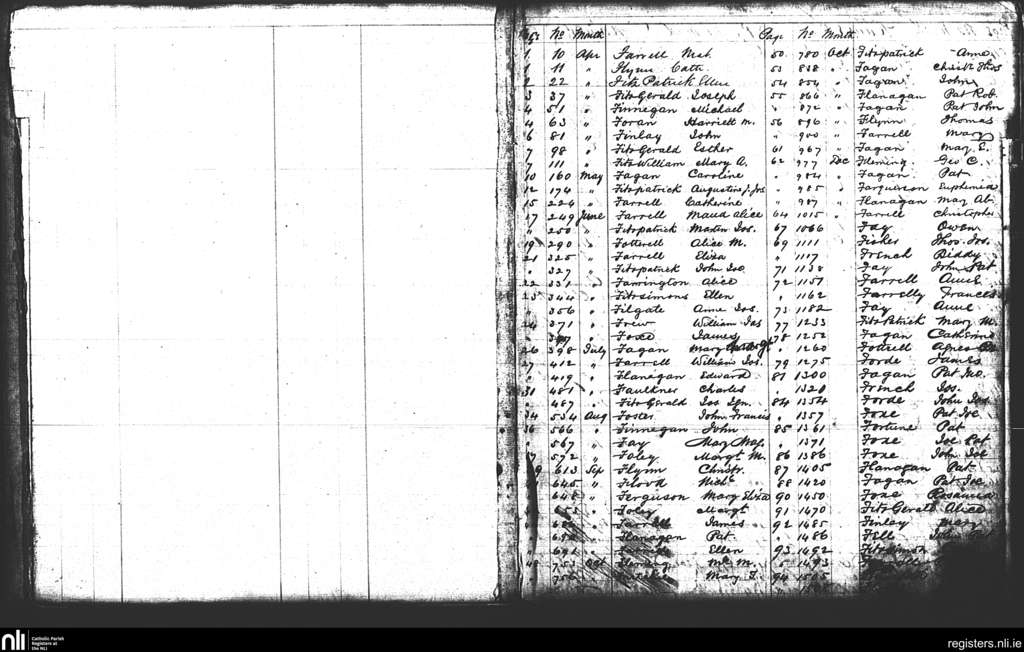 No Month Page No Month
1 10 Apr Farrell Mich 50 780 Oct Fitzpatrick Anne
1 11 " Flynn Cath 53 838 " Fagan Christr Thos
22 " Fitz Patrick Ellen 54 854 " Fagan John
3 37 " FitzGerald Joseph 55 866 " Flanagan Pat Rob.
4 51 " Finnegan Michael " 872 " Fagan Pat John
4 63 " Foran Harriett M. 56 896 " Flynn Thomas
6 81 " Finlay John " 900 " Farrell Mary
7 98 " FitzGerald Esther 61 967 " Fagan Mary E.
7 111 " FitzWilliam Mary A. 62 977 Dec Fleming Geo C.
10 160 May Fagan Caroline " 984 " Fagan Pat
12 174 " Fitzpatrick Augustus J. Jos " 985 " Farguerson Euphemia
15 224 " Farrell Catherine " 987 " Flanagan Mary
17 249 June Farrell Maud Alice 64 1015 " Farrell Christopher
" 250 " Fitzpatrick Martin Jos. 67 1066 Fay Owen
19 290 " Fottrell Alice M. 69 1111 Fisher Thos. Jos.
21 325 " Farrell Eliza " 1117 French Biddy
" 327 " Fitzpatrick John Jos 71 1138 Fay John Pat
22 331 " Farrington Alice 72 1151 Farrell Annie
23 344 " Fitzsimons Ellen " 1162 Farrelly Frances
" 356 " Filgate Anne Jos. 73 1182 Fay Annie
24 371 " Frew William Jas 77 1233 FitzPatrick Mary M.
" Foxe James 78 1252 Fagan Catherine
26 398 July Fagan Mary " 1260 Fottrell Agnes
27 412 " Farrell William Jos. 79 1275 Forde James
" 419 " Flanagan Edward 81 1300 Fagan Pat Jno.
31 481 " Faulkner Charles " 1320 French Jos.
" 487 " FitzGerald Jos Ign. 84 1354 Forde John Jos
34 534 Aug Foster John Francis " 1357 Foxe Pat Joe
36 566 " Finnegan John 85 1361 Fortune Pat
" 567 " Fay Mary Mag. " 1371 Foxe Joe Pat
572 " Foley Margt M. 86 1386 Foxe John Joe
9 613 Sep Flynn Christr. 87 1405 Flanagan Pat
645 " Flood Michl 88 1420 Fagan Pat Joe
648 " Ferguson Mary Eliza 90 1450 Foxe Rosanna
653 " Foley Margt 91 1470 FitzGerald Alice
" Farrell James 92 1485 Finlay Mary
" Flanagan Pat. " 1486 Fell John
691 " Ellen 93 1492 Fitzsimon
753 Oct Fleming M. 1493
Mary J. 94 1505
nli Catholic Parish
Registers at
the NLI
registers.nli.ie